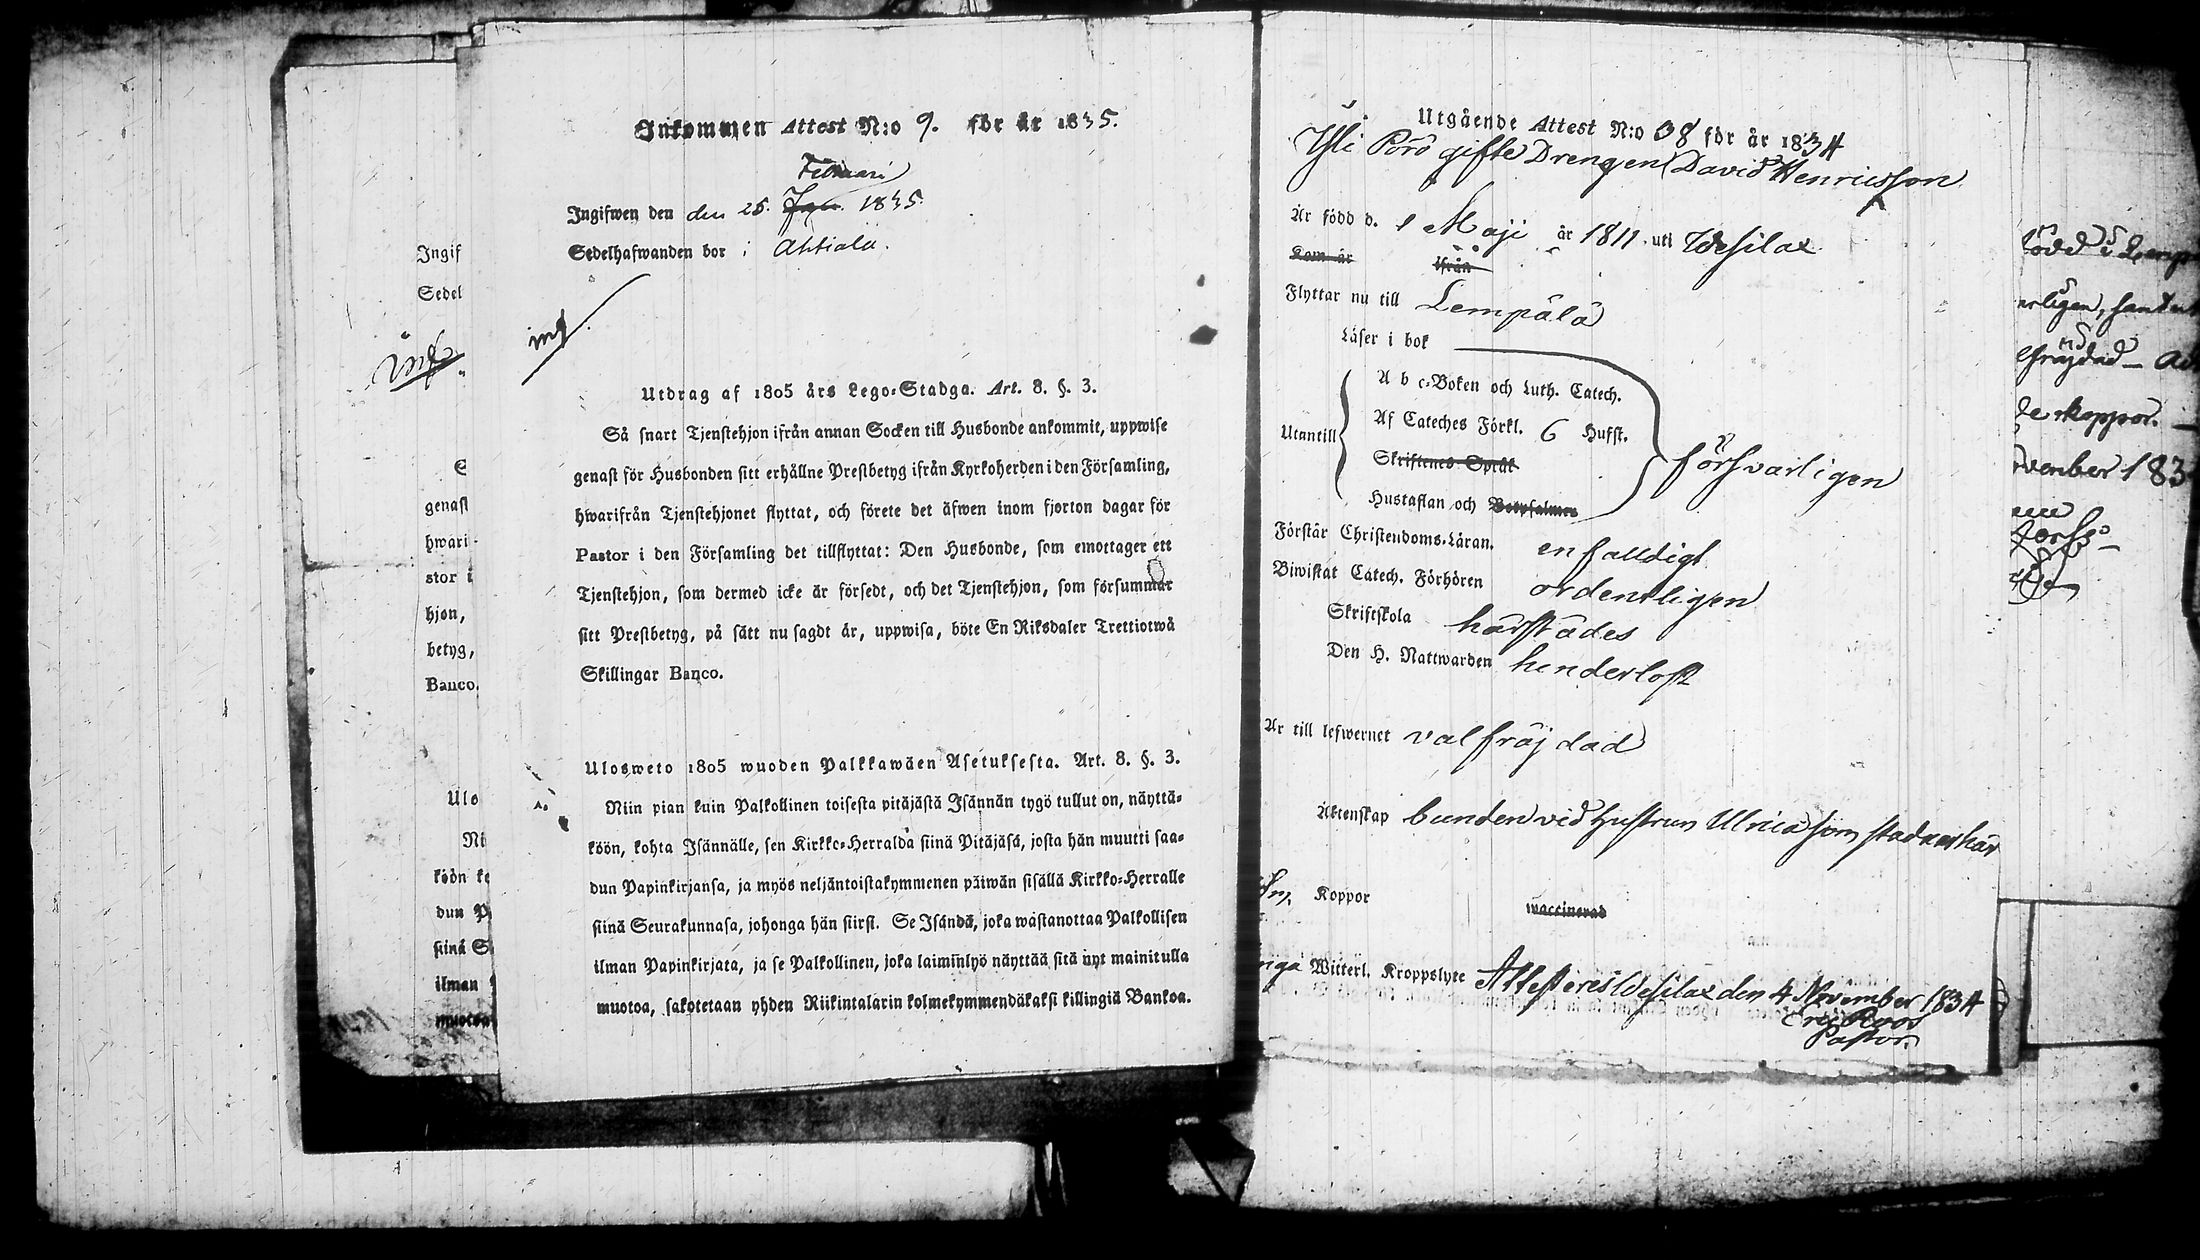 Inkommen Attest N:o 9. för år 1835.
Februari
Ingifwen den den 25. 1835.
Sedelhafwanden bor i Ahtiala.
inf.
Utdrag af 1805 års Lego-Stadga. Art. 8. §. 3.
Så snart Tjenstehjon ifrån annan Socken till Husbonde ankommit, uppwise
genast för Husbonden sitt erhållne Prestbetyg ifrån Kyrkoherden i den Församling,
hwarifrån Tjenstehjonet flyttat, och förete det äfwen inom fjorton dagar för
Pastor i den Församling det tillflyttat: Den Husbonde, som emottager ett
Tjenstehjon, som dermed icke är försedt, och det Tjenstehjon, som försummar
sitt Prestbetyg, på sätt nu sagdt är, uppwisa, böte En Riksdaler Trettiotwå
Skillingar Banco.
Ulosweto 1805 wuoden Palkkawäen Asetuksesta. Art. 8. §. 3.
Niin pian kuin Palkollinen toisesta pitäjästä Isännän tygö tullut on, näyttä-
köön, kohta Isännälle, sen Kirkko-Herralda siinä Pitäjäsä, josta hän muutti saa-
dun Papinkirjansa, ja myös neljäntoistakymmenen päiwän sisällä Kirkko-Herralle
siinä Seurakunnasa, johonga hän siirsi. Se Isändä, joka wastanottaa Palkollisen
ilman Papinkirjata, ja se Palkollinen, joka laiminlyö näyttää sitä nyt mainitulla
muotoa, sakotetaan yhden Riikintalarin kolmekymmendäkaksi killingiä Bankoa.
Ingif
Sedel
inf.
genast
hwari-
stor i
hjon,
betyg,
Banco.
Ulo
Ni
köön ko
dun P
siinä S
ilman
muotoa
Utgående Attest N:o 38 för år 1834
Yli Pörö gifte Drengen David Henricsson
Är född d. 1 Maji år 1811 uti Wesilax
Kom år ifrån
Flyttar nu till Lempälä
Läser i bok
A b c-Boken och Luth. Catech.
Utantill Af Cateches Förkl. 6 Hufst. försvarligen
Skriftenes Språk
Hustaflan och Botpsalmen
Förstår Christendoms-Läran. enfalldigt
Biwistat Catech. Förhören ordentligen
Skriftskola härstädes
Den H. Nattwarden hinderlöst
Är till lefwernet välfräjdad
Äktenskap bunden vid hustrun Ulrica som stadnar här
Koppor
waccinerad
Witterl. Kroppslyte Attesteres Wesilax den 4 November 1834
Roos
Pastor.
född i Lemp
erligen, samt
fräjdad
koppor.
ovember 183